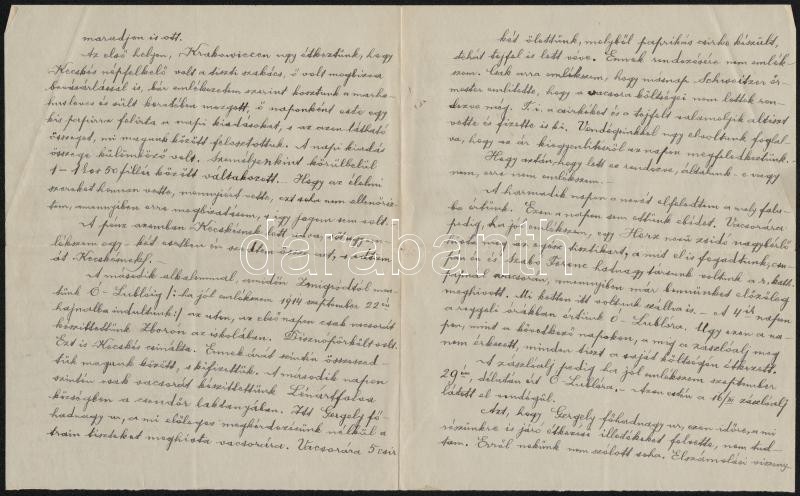 maradjon is ott.
Az első helyen, Krakowiecen ugy étkeztünk, hogy
Kecskés népfelkelő volt a tiszti szakács, ő volt megbízva
bevásárlással is, bár emlékezetem szerint kosztunk a marha
husleves és sült keretében mozgott, ő naponként este egy
kis papírra felírta a napi kiadásokat, s az azon látható
összeget, mi magunk között felosztottuk. A napi kiadás
összege külömböző volt. Személyenkint körülbelül
1 - 1 kor 50 fillér között váltakozott. - Hogy az élelmi
szereket honnan vette, mennyiért vette, ezt soha nem ellenőriz-
tem, amennyiben erre megbízásom, s így jogom sem volt.
A pénz azonban Kecskésnek lett adva,
lékszem egy - két esetben én szedtem össze azt, s adtam
át Kecskésnek. -
A második alkalommal, amidőn Zmigródtól men-
tünk Ó-Lublóig /: ha jól emlékszem 1914 szeptember 22 én
hajnalba indultunk :/ az uton, az első napon csak vacsorát
készíttettünk Zboron az iskolában. Disznópörkölt volt.
Ezt is Kecskés csinálta. Ennek árát szintén összeszed-
tük magunk között, s kifizettük. A második napon
szintén csak vacsorát készíttettünk Lénártfalva
községben a csendőr laktanyában. Itt Gergely fő-
hadnagy ur, a mi előleges megkérdezésünk nélkül a
train tiszteket meghívta vacsorára. Vacsorára 5 csir
két ölettünk, melyből paprikás csirke készült,
tehát tejfel is lett véve. Ennek rendezésére nem emlék-
szem. Csak arra emlékszem, hogy másnap Schweitzer őr-
mester említette, hogy a vacsora költségei nem lettek ren-
dezve még. T. i. a csirkéket és a tejfelt valamelyik altiszt
vette és fizette is ki. Vendégeinkkel ugy elvoltunk foglal-
va, hogy az ár kiegyenlítéséről az napon megfeledkeztünk. -
Hogy aztán, hogy lett ez rendezve, általunk - e vagy
nem, erre nem emlékszem. -
A harmadik napon a nevét elfeledtem a mely falu-
ba értünk. Ezen a napon sem ettünk ebédet. Vacsorára
pedig, ha jól emlékszem, egy Herz nevű zsidó nagybérlő
hivta meg az egész tisztikart, a mit el is fogadtunk, csu-
pán én és Szabó Ferenc hadnagy társunk voltunk a r. kath.
papnál vacsorán, amennyiben már bennünket előzőleg
meghívott. Mi ketten itt voltunk szállva is. - A 4 ik napon
a reggeli órákban értünk Ó-Lublóra. Ugy ezen a na-
pon, mint a következő napokon, a míg a zászlóalj meg
nem érkezett, minden tiszt a saját költségén étkezett.
A zászlóalj pedig ha jól emlékszem szeptember
29 én, délután ért Ó-Lublóra, - Azon estén a 16/III zászlóalj
látott el vendégül.
Azt, hogy Gergely főhadnagy ur, ezen időre, a mi
részünkre is járó étkezési illetékeket felvette, nem tud-
tam. Erről nekünk nem szólott soha. Elszámolási viszony
darabanth